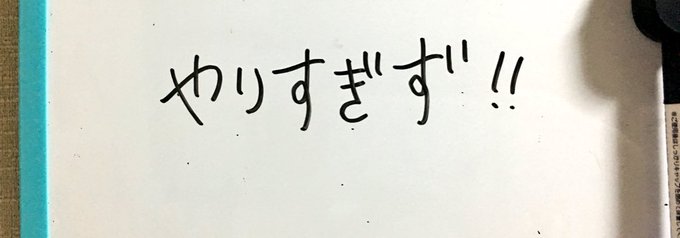 やりすぎず!!